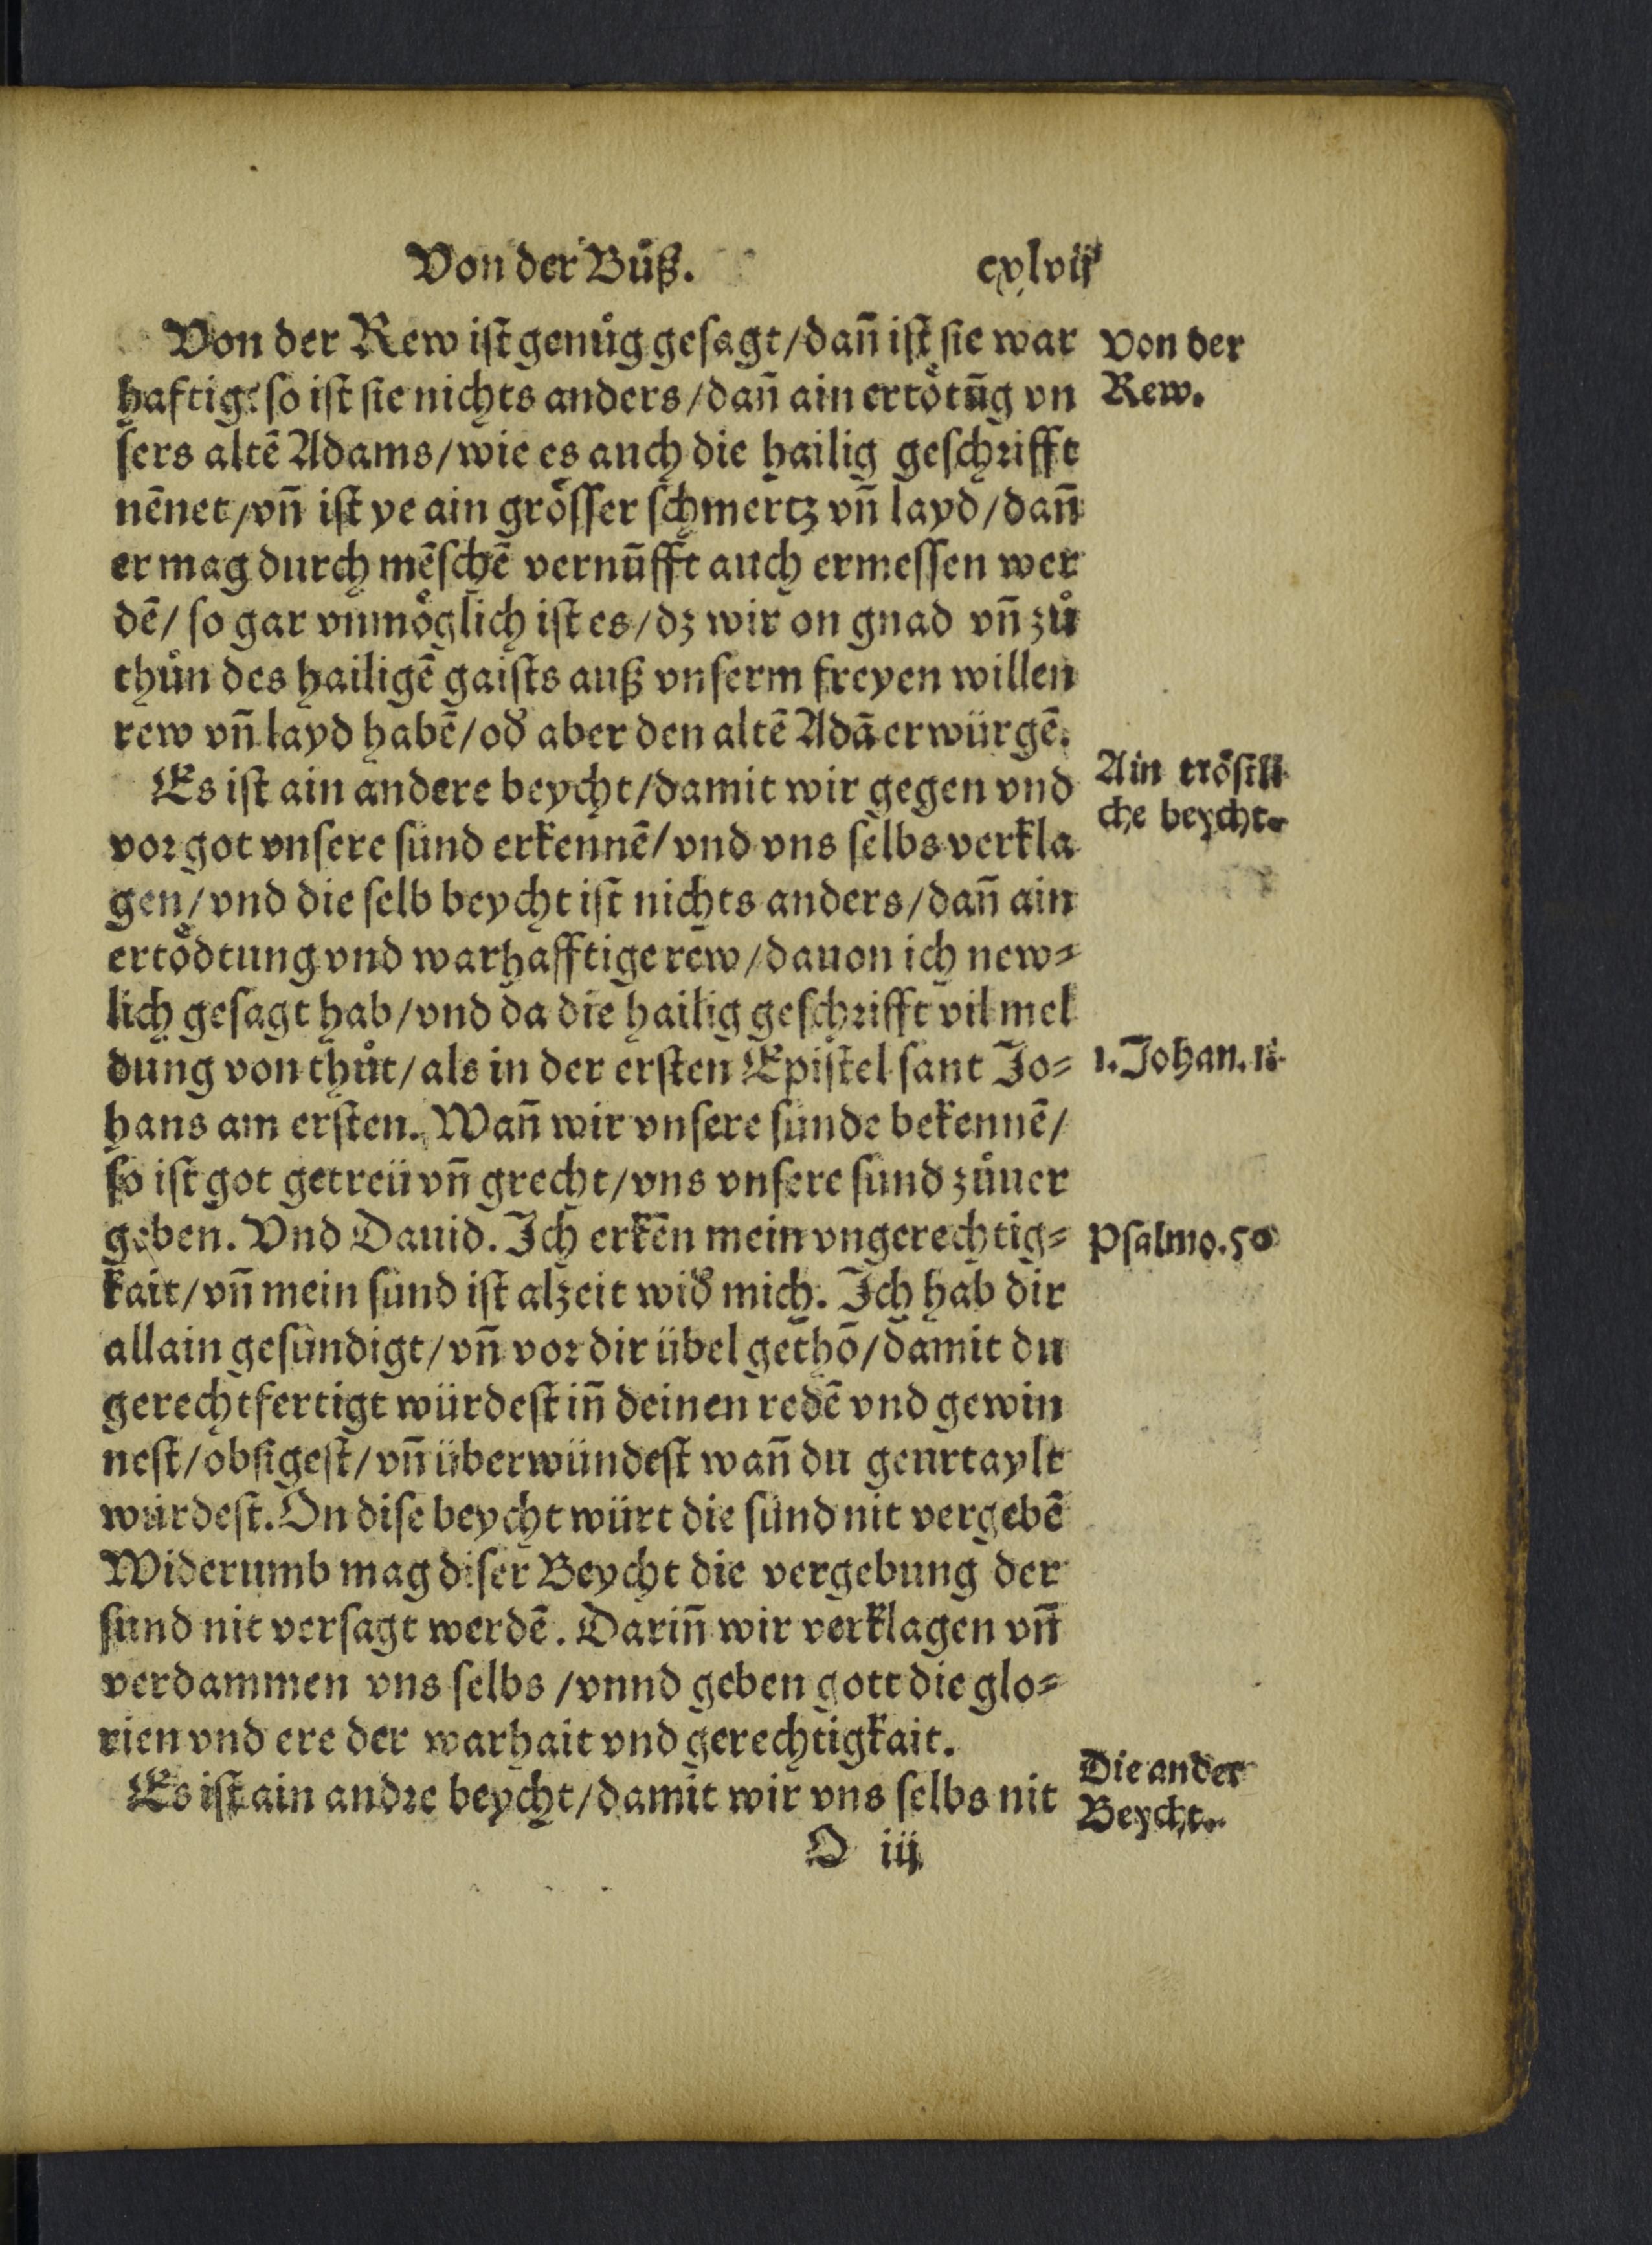 Von der Bůß. cxlvij
Von der Rew iſt genůg geſagt/dañ iſt ſie war
haftig: ſo iſt ſie nichts anders/dañ ain ertoͤtūg vn
ſers altē Adams/wie es auch die hailig geſchꝛifft
nēnet/vñ iſt ye ain groͤſſer ſchmertz vñ layd/dañ
er mag durch mēſchē vernūfft auch ermeſſen wer
dē/ ſo gar vnmoͤglich iſt es/dz wir on gnad vñ zů
thůn des hailigē gaiſts auß vnſerm freyen willen
rew vñ layd habē/oď aber den altē Adā erwürgē.
Es iſt ain andere beycht/damit wir gegen vnd
voꝛ got vnſere ſünd erkennē/vnd vns ſelbs verkla
gen/vnd die ſelb beycht iſt nichts anders/dañ ain
ertoͤdtung vnd warhafftige rew/dauon ich new⸗
lich geſagt hab/vnd da die hailig geſchꝛifft vil mel
dung von thůt/als in der erſten Epiſtel ſant Jo⸗
hans am erſten. Wañ wir vnſere ſünde bekennē/
ſo iſt got getreü vñ grecht/vns vnſere ſünd zůuer
geben. Vnd Dauid. Ich erkēn mein vngerechtig⸗
kait/vñ mein ſünd iſt alzeit wiď mich. Ich hab dir
allain geſündigt/vñ voꝛ dir übel gethō/damit du
gerechtfertigt würdeſt iñ deinen redē vnd gewin
neſt/obſigeſt/vñ überwündeſt wañ du geurtaylt
würdeſt. On diſe beycht würt die ſünd nit vergebē
Widerumb mag diſer Beycht die vergebung der
ſünd nit verſagt werdē. Dariñ wir verklagen vñ
verdammen vns ſelbs /vnnd geben gott die glo⸗
rien vnd ere der warhait vnd gerechtigkait.
Es iſt ain andꝛe beycht/damit wir vns ſelbs nit
O iij
Von der
Rew.
Ain tröſtli
che beycht.
1.Johan.1.
Pſalmo.50
Die ander
Beycht.